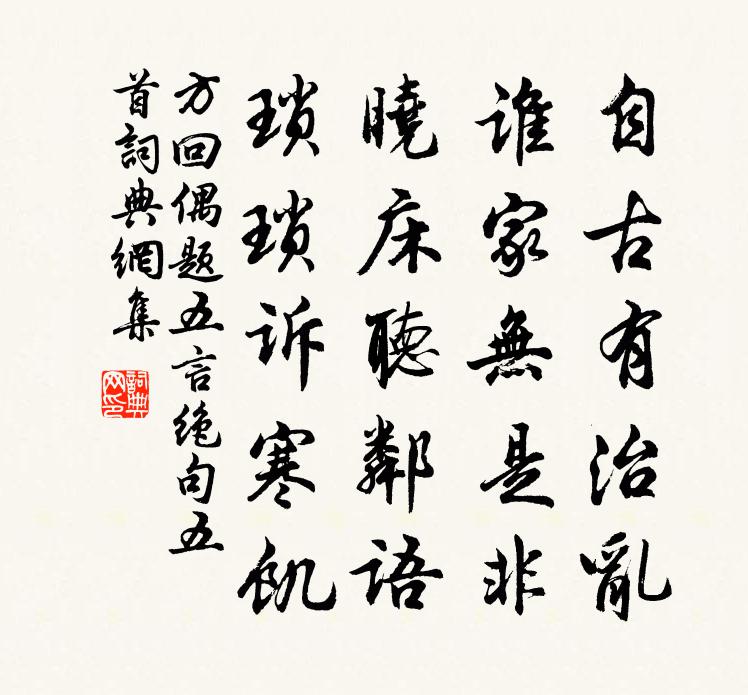 自古有治亂
誰家無是非
曉床聽鄰語
瑣瑣訴寒飢
方回偶题五言绝句五
首詞典網集
詞典
网印